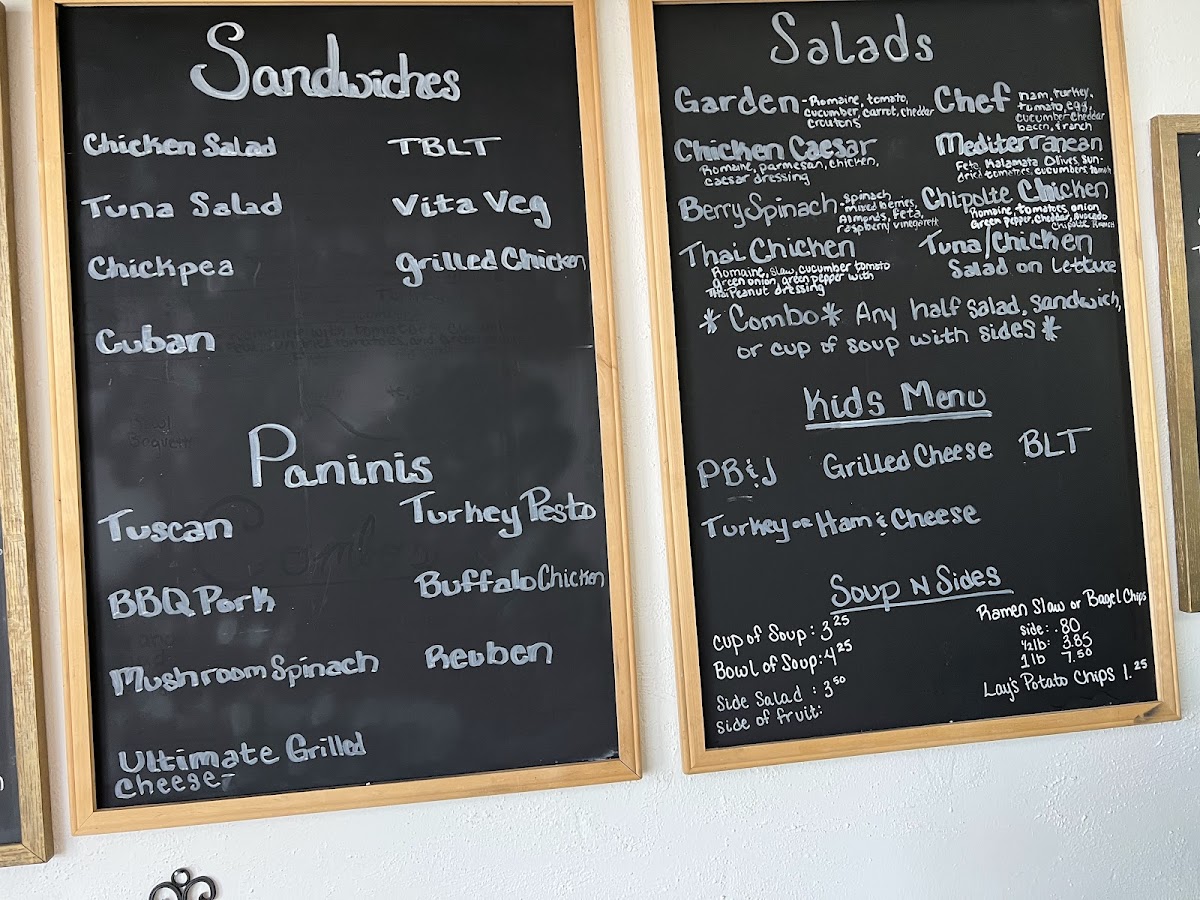 Sandwiches
Chicken Salad
TBLT
Tuna Salad
Vita Veg
Chickpea
grilled Chicken
Cuban
Paninis
Tuscan
Turkey Pesto
BBQ Pork
Buffalo Chicken
Mushroom Spinach
Reuben
Ultimate Grilled
Cheese-
Salads
Garden - Romaine, tomato,
cucumber, carrot, cheddar
croutons
Chef ham, turkey,
tomato, egg,
cucumber cheddar
bacon, ranch
Chicken Caesar
Romaine, parmesan, chicken,
caesar dressing
Mediterranean
Feta, Kalamata Olives, sun-
dried tomatoes, cucumbers,
Berry Spinach - spinach,
mixed berries,
Almonds, feta,
raspberry vinegarett
Chipolte Chicken
Romaine, tomatoes, onion
Green pepper, cheddar, Avocado
Chipolte Ranch
Thai Chicken
Romaine, slaw, cucumber tomato
Green onion, green pepper with
Thai Peanut dressing
Tuna/Chicken
Salad on Lettuce
* Combo * Any half salad, sandwich,
or cup of soup with sides *
Kids Menu
PB&J
Grilled Cheese
BLT
Turkey or Ham & Cheese
Soup N Sides
Cup of Soup: 3 25
Bowl of Soup: 4 25
Side Salad : 3 50
Side of fruit:
Ramen Slaw or Bagel Chips
side: .80
1/2 lb: 3.85
1 lb 7.50
Lay's Potato Chips 1.25